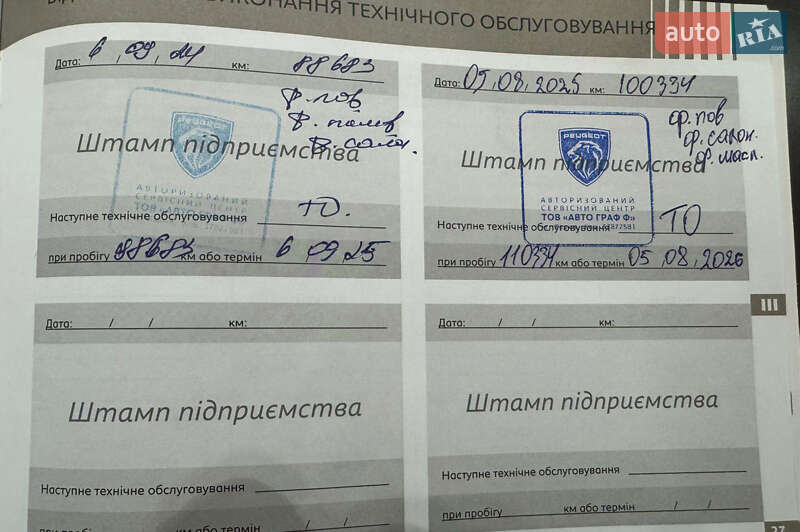 ВИКОНАННЯ ТЕХНІЧНОГО ОБСЛУГОВУВАННЯ
auto RIA.com
Дата: 6, 09, 24 км: 88683
ф. пов
ф. палив
ф. салон.
PEUGEOT
Штамп підприємства
АВТОРИЗОВАНИЙ
СЕРВІСНИЙ ЦЕНТР
Наступне технічне обслуговування ТО.
при пробігу 98683 км або термін 6 09, 25
Дата: 05, 08, 2025 км: 100334
ф. пов
ф. салон.
ф. масл.
PEUGEOT
Штамп підприємства
АВТОРИЗОВАНИЙ
СЕРВІСНИЙ ЦЕНТР
ТОВ «АВТО ГРАФ Ф»
Наступне технічне обслуговування ТО
при пробігу 110334 км або термін 05, 08, 2026
III
Дата: / / км:
Штамп підприємства
Наступне технічне обслуговування
при пробігу км або термін / /
Дата: / / км:
Штамп підприємства
Наступне технічне обслуговування
при пробігу км або термін / /
27